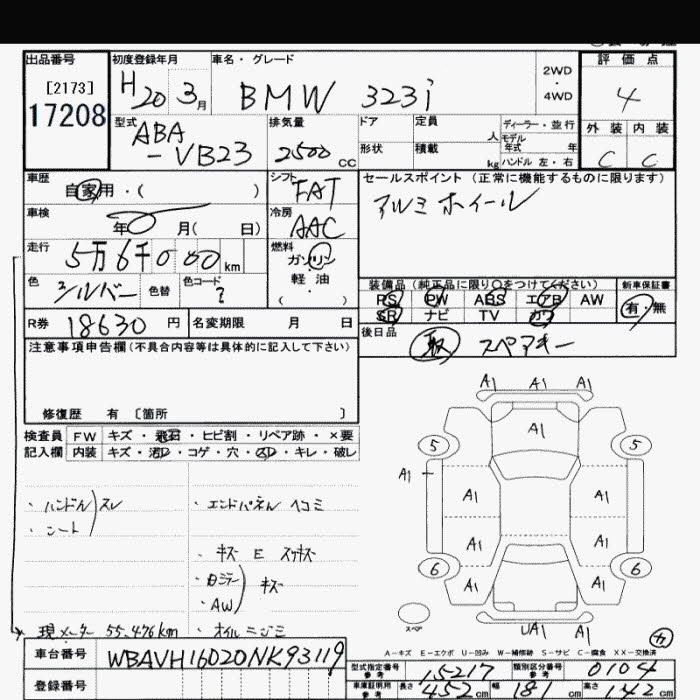 出品番号
[2173]
17208
初度登録年月
H20 3月
車名・グレード
BMW 323i
2WD
・
4WD
評価点
4
型式
ABA
-VB23
排気量
2500cc
ドア
形状
定員
人
積載
kg
ディーラー・並行
モデル年式 年
ハンドル 左・右
外装 内装
C C
車歴
自家用・( )
シフト
FAT
セールスポイント (正常に機能するものに限ります)
アルミホイール
車検
年0月( 日)
冷房
AAC
走行
5万6千000km
燃料
ガソリン
軽油
( ・ )
色
シルバー
色替
色コード
?
装備品(純正品に限り○をつけてください)
新車保証書
PS PW ABS エアB AW
SR ナビ TV カワ
有・無
R券 18630円
名変期限 月 日
後日品
取 スペアキー
注意事項申告欄(不具合内容等は具体的に記入して下さい)
修復歴 有 〔箇所 〕
検査員
記入欄
FW キズ・飛石・ヒビ割・リペア跡・×要
内装 キズ・汚レ・コゲ・穴・スレ・キレ・破レ
・ハンドル
・シート
スレ
・エンドパネル ヘコミ
・キズ E スリキズ
・AW)
キズ
・オイルニジミ
現メーター 55,476km
A1 A1 A1
A1
5 5
A1
A1 A1
A1 A1
6 6
A1 A1
スペア
UA1 A1
A-キズ E-エクボ U-凹み W-補修跡 S-サビ C-腐食 XX-交換済
車台番号
WBAVH16020NK93119
登録番号
型式指定番号
参考
15217
類別区分番号
参考
0104
車庫証明用
参考
長さ 452cm 幅 181cm 高さ 142cm